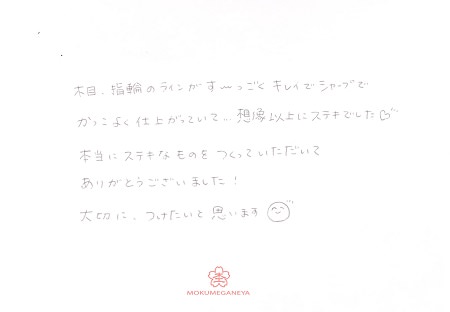 木目、指輪のラインがす〜っごく キレイでシャープで
かっこよく仕上がっていて… 想像以上にステキでした♡
本当にステキなものをつくっていただいて
ありがとうございました！
大切に、つけたいと思います
MOKUMEGANEYA